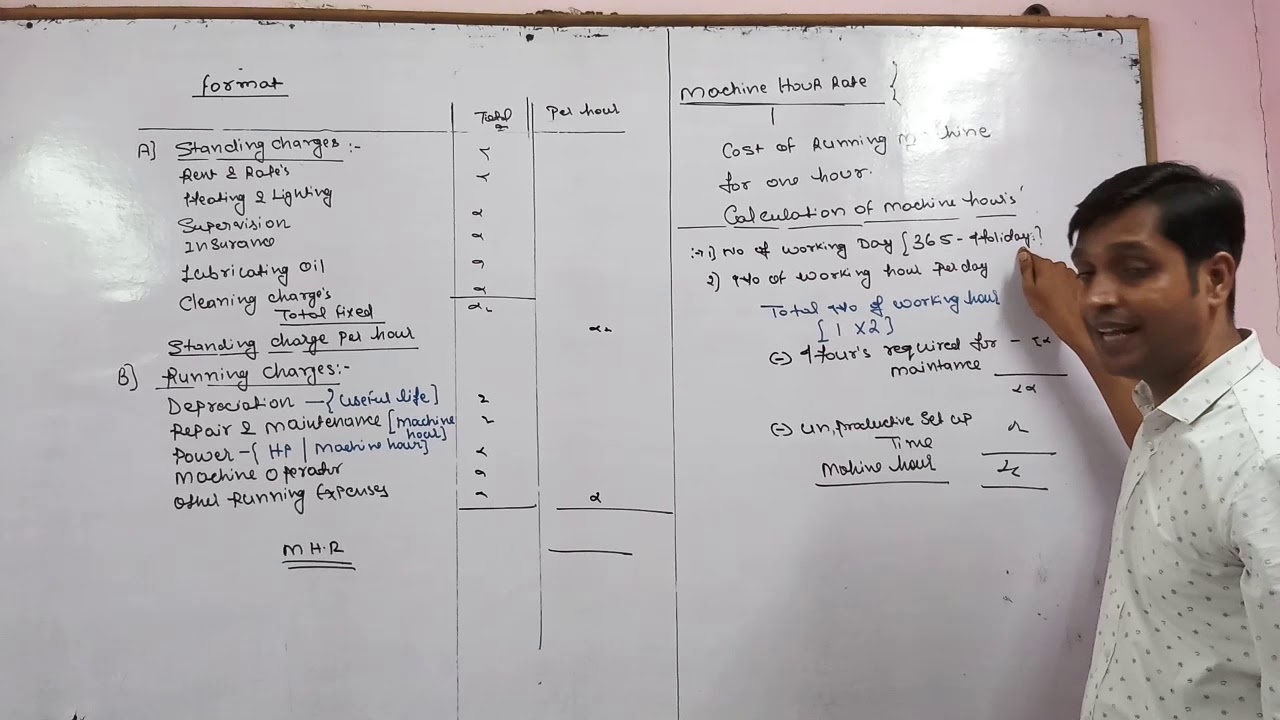 Format
Total Per hour
A] Standing charges :-
Rent & Rate's
Heating & Lighting
Supervision
Insurance
Lubricating Oil
Cleaning charge's
Total fixed
Standing charge Per hour
B] Running charges:-
Depreciation — {useful life]
Repair & maintenance [machine hour]
Power - { HP | Machine hour]
Machine Operator
Other Running Expenses
M H.R
Machine Hour Rate {
Cost of Running
for one hour.
Calculation of machine hour's
:-> 1) No of working Day [365 - Holiday.]
2) No of working hour Per day
Total No of working hour
[ 1 x 2 ]
(-) Hour's required for - xx
maintance
xx
(-) un, productive Set up x
Time
Mahine hour